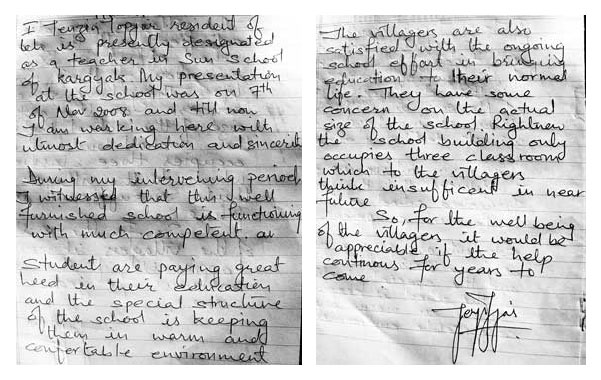 I Tenzin Topgar resident of
leh is presently designated
as a teacher in Sun School
of kargyak My presentation
at the school was on 7th
of Nov 2008 and till now
I am working here with
utmost dedication and sincerity
During my interveing period
I witnessed that this well
furnished school is functioning
with much competent
Student are paying great
heed in their education
and the special structure
of the school is keeping
them in warm and
comfortable environment
The villagers are also
satisfied with the ongoing
school effort in bringing
education to their normal
life. They have some
concern on the actual
size of the school Rightnow
the school building only
occupies three classroom
which to the villagers
think insufficent in near
future
So, for the well being
of the villagers, it would be
appreciable if the help
continous for years to
come